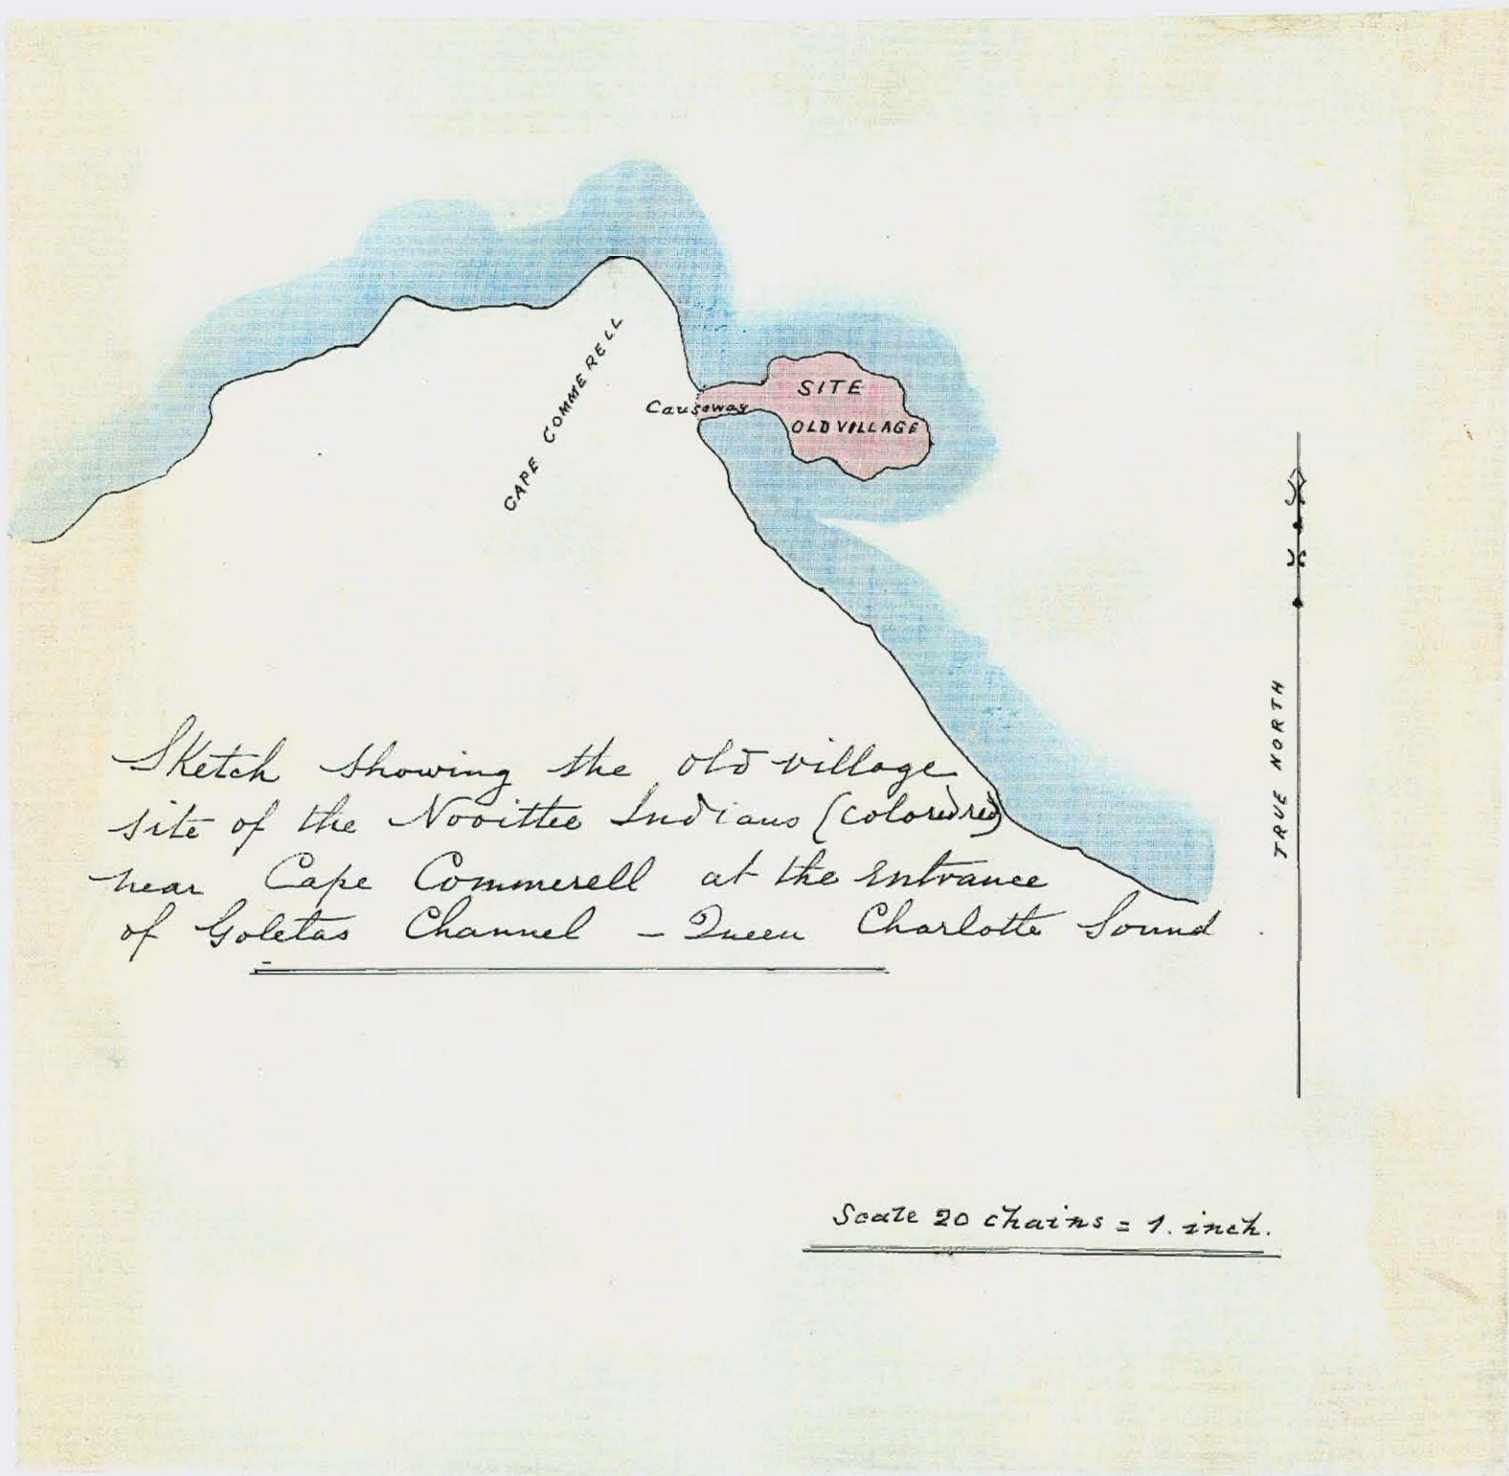 CAPE COMMERELL
Causeway
SITE
OLD VILLAGE
TRUE NORTH
Sketch showing the old village
site of the Nooittee Indians (colored red)
near Cape Commerell at the Entrance
of Goletas Channel – Queen Charlotte Sound
Scale 20 chains = 1. inch.